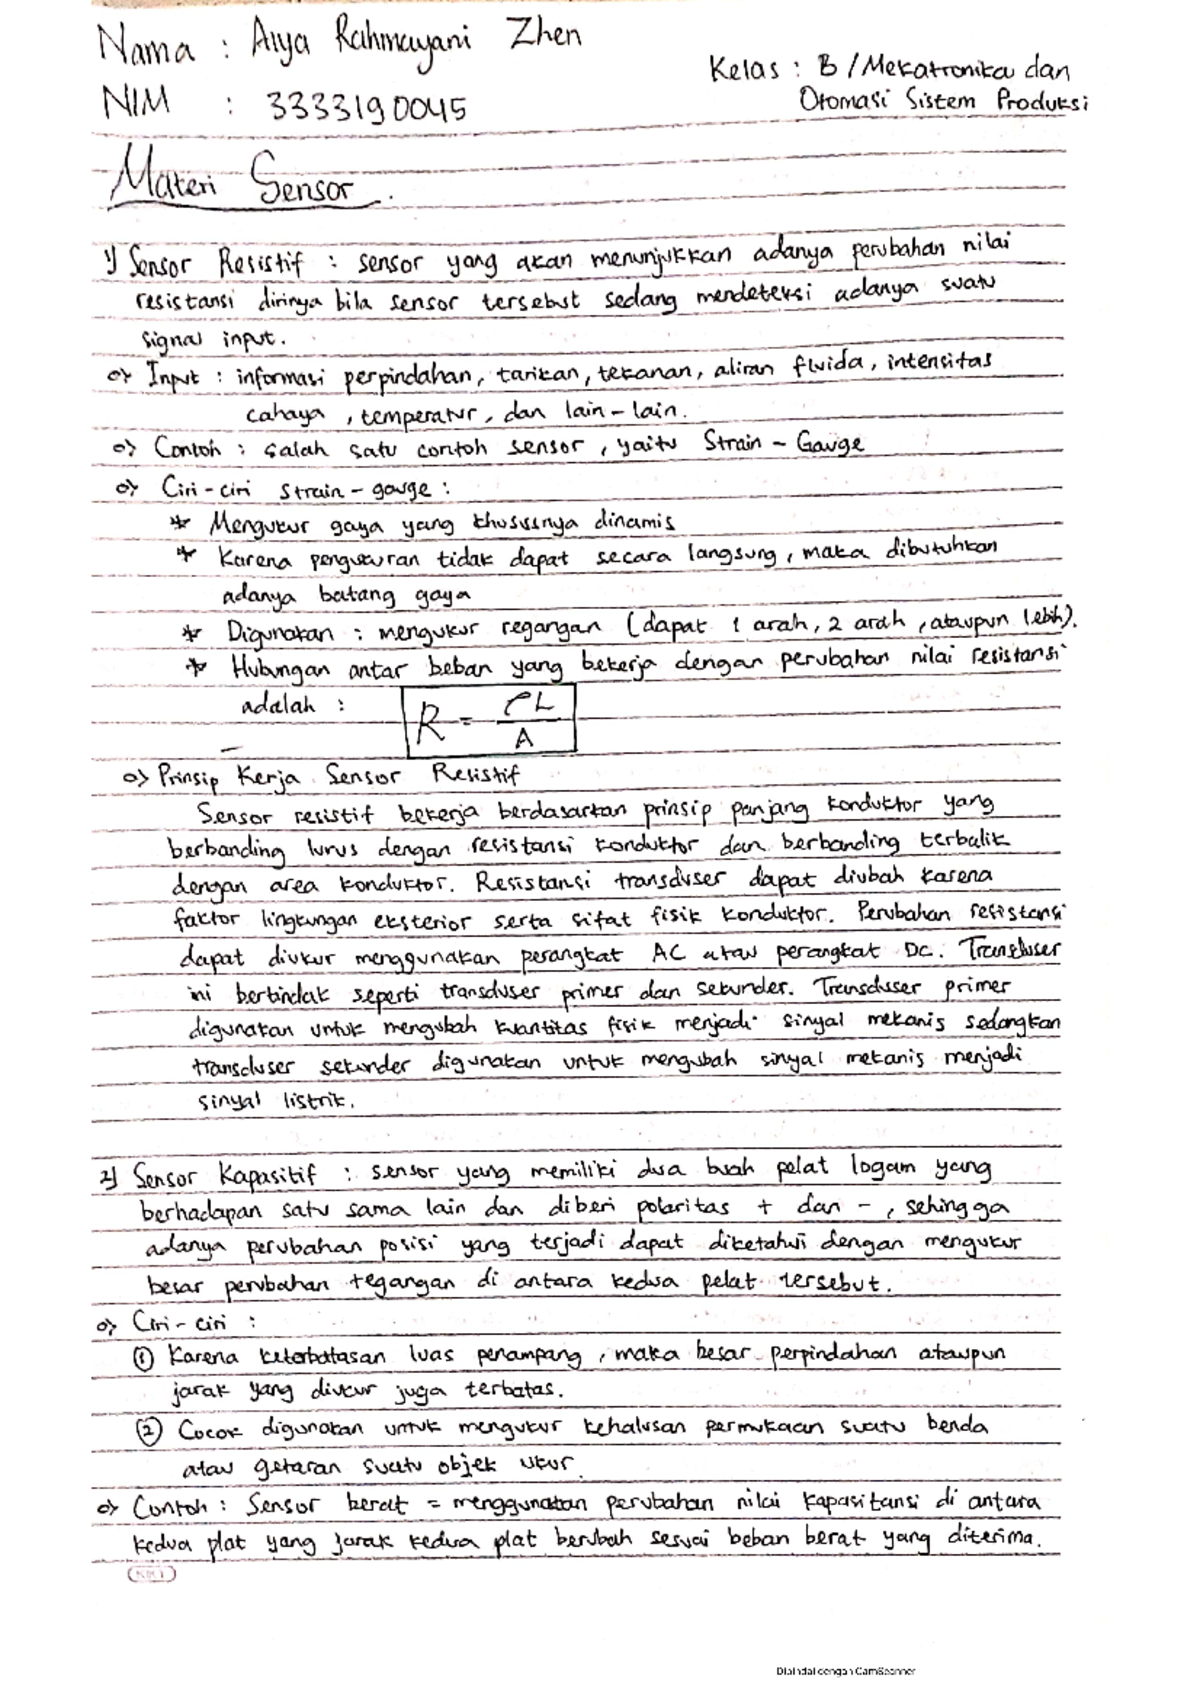 Nama : Alya Rahmayani Zhen
NIM : 3333190045
Kelas : B / Mekatronika dan
Otomasi Sistem Produksi
Materi Sensor.
1) Sensor Resistif : sensor yang akan menunjukkan adanya perubahan nilai
resistansi dirinya bila sensor tersebut sedang mendeteksi adanya suatu
signal input.
o> Input : informasi perpindahan, tarikan, tekanan, aliran fluida, intensitas
cahaya, temperatur, dan lain-lain.
o> Contoh : salah satu contoh sensor, yaitu Strain - Gauge
o> Ciri-ciri strain-gauge :
* Mengukur gaya yang khususnya dinamis
* Karena pengukuran tidak dapat secara langsung, maka dibutuhkan
adanya batang gaya
* Digunakan : mengukur regangan (dapat 1 arah, 2 arah, ataupun lebih).
* Hubungan antar beban yang bekerja dengan perubahan nilai resistansi
adalah : R = ρL / A
o> Prinsip Kerja Sensor Resistif
Sensor resistif bekerja berdasarkan prinsip panjang konduktor yang
berbanding lurus dengan resistansi konduktor dan berbanding terbalik
dengan area konduktor. Resistansi transduser dapat diubah karena
faktor lingkungan eksterior serta sifat fisik konduktor. Perubahan resistansi
dapat diukur menggunakan perangkat AC atau perangkat DC. Transduser
ini bertindak seperti transduser primer dan sekunder. Transduser primer
digunakan untuk mengubah kuantitas fisik menjadi sinyal mekanis sedangkan
transduser sekunder digunakan untuk mengubah sinyal mekanis menjadi
sinyal listrik.
2) Sensor Kapasitif : sensor yang memiliki dua buah pelat logam yang
berhadapan satu sama lain dan diberi polaritas + dan -, sehingga
adanya perubahan posisi yang terjadi dapat diketahui dengan mengukur
besar perubahan tegangan di antara kedua pelat tersebut.
o> Ciri-ciri :
① Karena keterbatasan luas penampang, maka besar perpindahan ataupun
jarak yang diukur juga terbatas.
② Cocok digunakan untuk mengukur kehalusan permukaan suatu benda
atau getaran suatu objek ukur.
o> Contoh : Sensor berat = menggunakan perubahan nilai kapasitansi di antara
kedua plat yang jarak kedua plat berubah sesuai beban berat yang diterima.
Dipindai dengan CamScanner